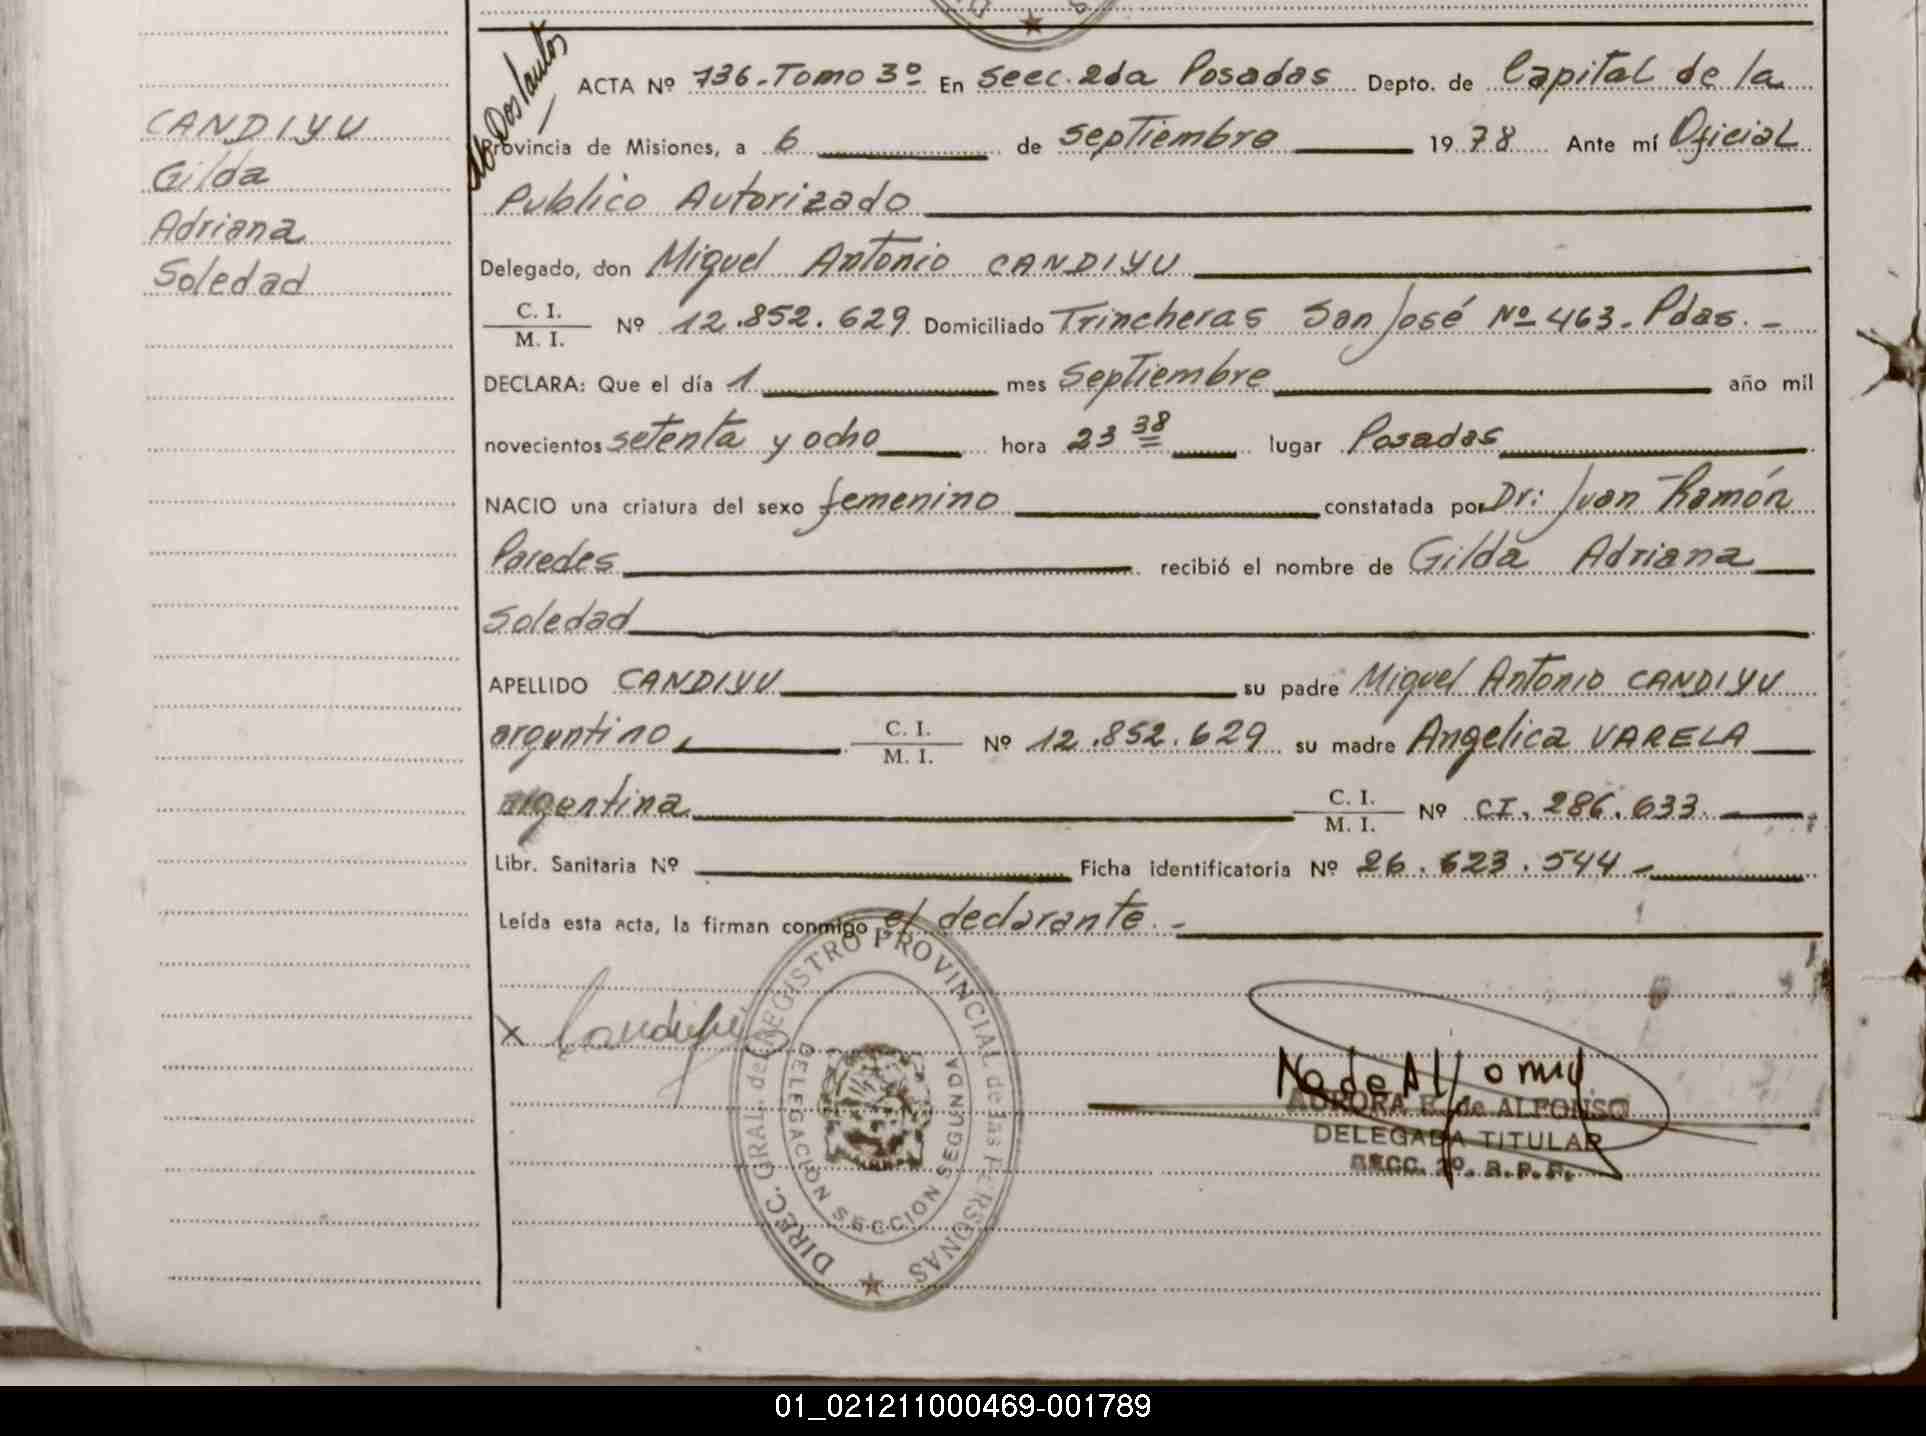 CANDIYU
Gilda
Adriana
Soledad
ACTA Nº 736.Tomo 3º En Secc. 2da Posadas Depto. de Capital de la
Provincia de Misiones, a 6 de septiembre 19 78 Ante mí Oficial
Publico Autorizado
Delegado, don Miguel Antonio CANDIYU
C. I.
M. I. Nº 12.852.629 Domiciliado Trincheras San José Nº 463. Pdas. -
DECLARA: Que el día 1 mes Septiembre año mil
novecientos setenta y ocho hora 23 38 lugar Posadas
NACIO una criatura del sexo femenino constatada por Dr: Juan Ramón
Paredes recibió el nombre de Gilda Adriana
Soledad
APELLIDO CANDIYU su padre Miguel Antonio CANDIYU
argentino, C. I.
M. I. Nº 12.852.629 su madre Angelica VARELA
argentina C. I.
M. I. Nº CI. 286.633.
Libr. Sanitaria Nº Ficha identificatoria Nº 26.623.544 -
Leída esta acta, la firman conmigo el declarante. -
x
DIREC. GRAL. del REGISTRO PROVINCIAL de las PERSONAS
DELEGACIÓN SECCION SEGUNDA
AURORA E. de ALFONSO
DELEGADA TITULAR
SECC. 2º. R. P. P.
01_021211000469-001789